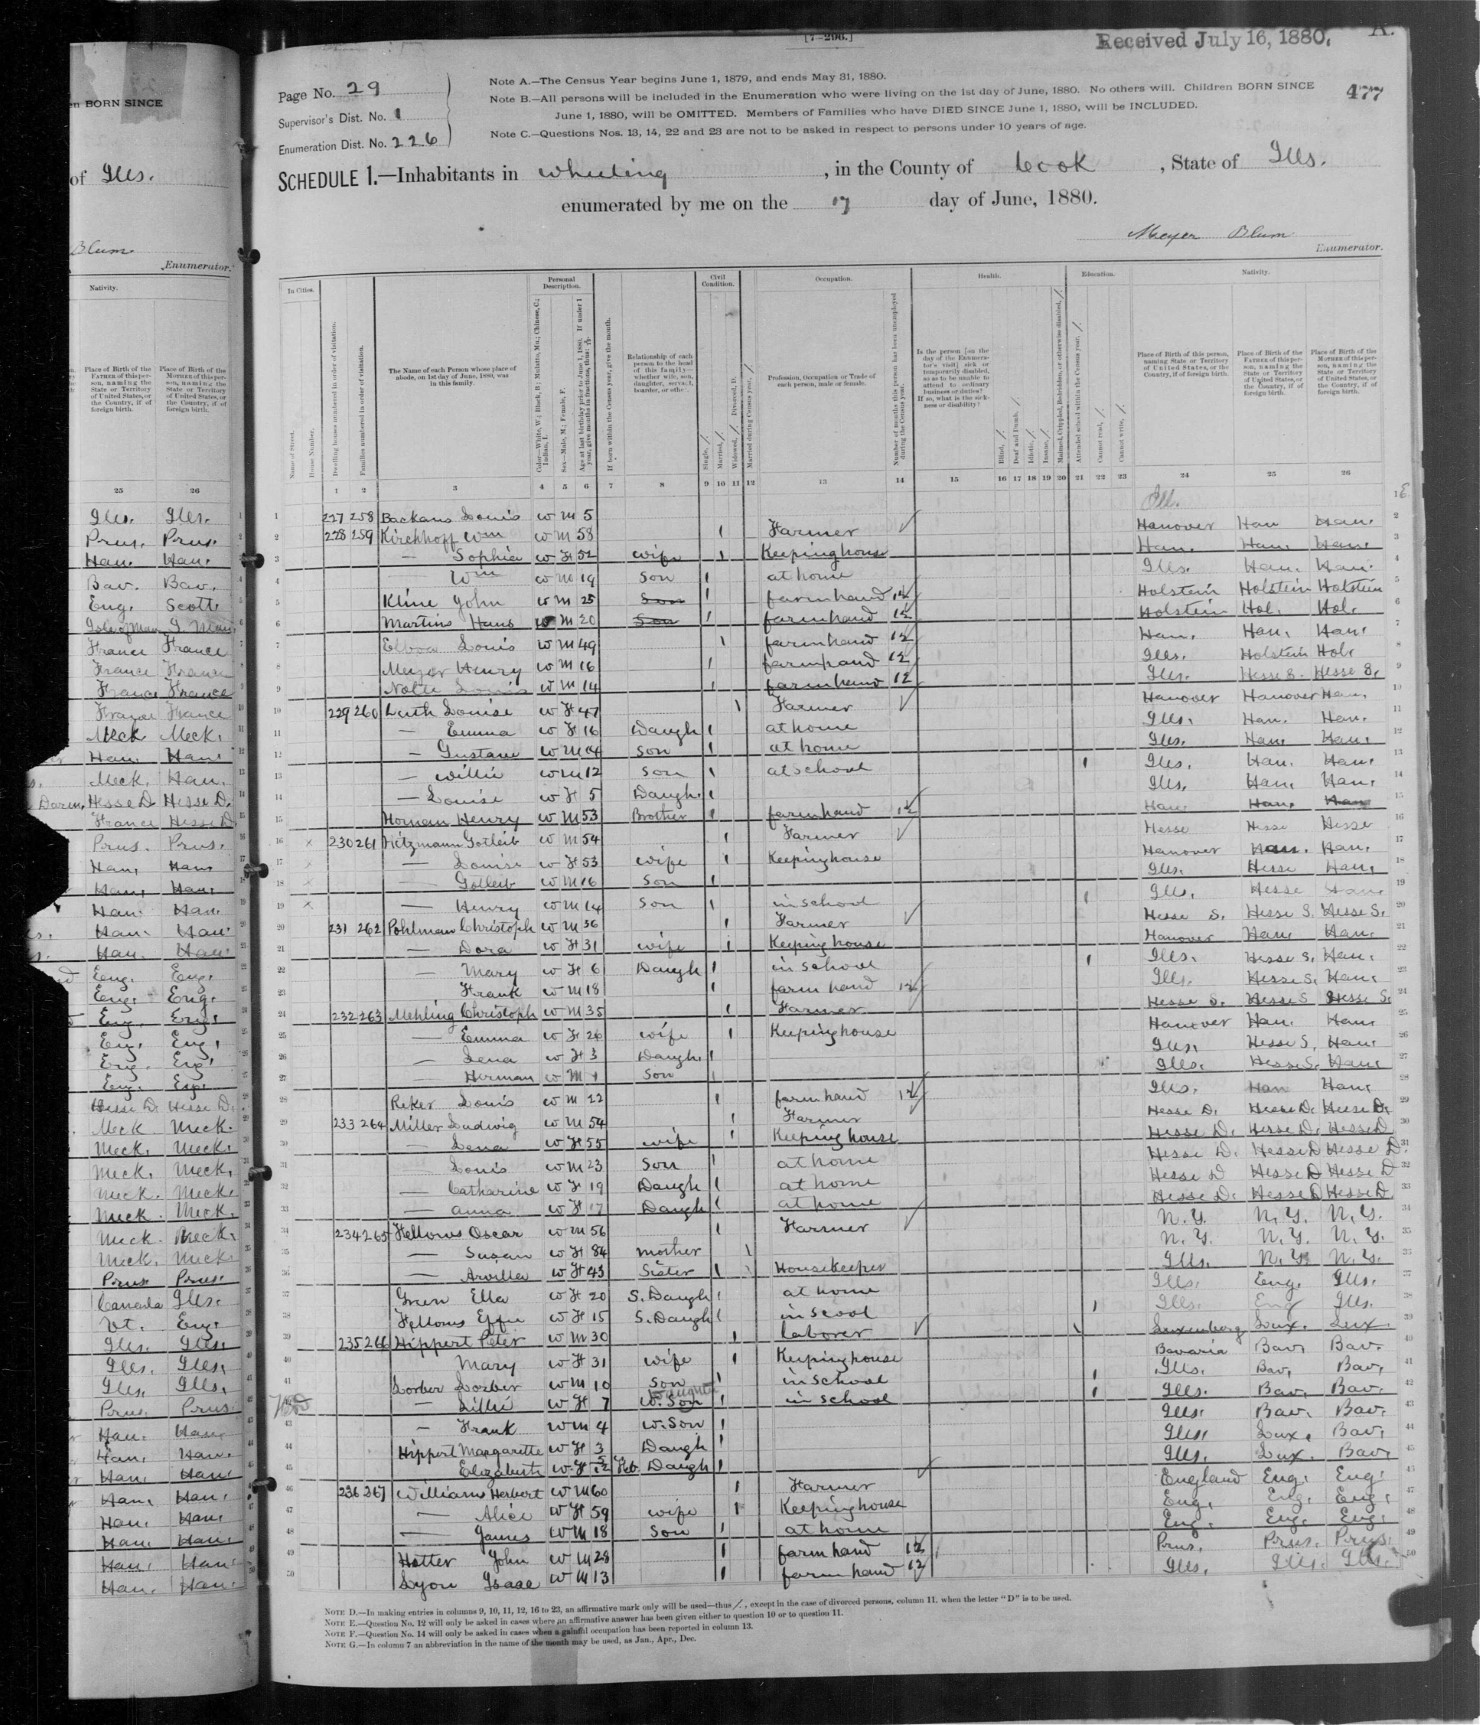 [7-296.]
Received July 16, 1880.
A.
477
Page No. 29
Supervisor's Dist. No. 1
Enumeration Dist. No. 226
Note A.—The Census Year begins June 1, 1879, and ends May 31, 1880.
Note B.—All persons will be included in the Enumeration who were living on the 1st day of June, 1880. No others will. Children BORN SINCE
June 1, 1880, will be OMITTED. Members of Families who have DIED SINCE June 1, 1880, will be INCLUDED.
Note C.—Questions Nos. 13, 14, 22 and 23 are not to be asked in respect to persons under 10 years of age.
SCHEDULE 1.—Inhabitants in Wheeling, in the County of Cook, State of Ills.
enumerated by me on the 17 day of June, 1880.
Meyer Blum
Enumerator.
In Cities. Personal Description. Civil Condition. Occupation. Health. Education. Nativity.
The Name of each Person whose place of abode, on 1st day of June, 1880, was in this family.
Profession, Occupation or Trade of each person, male or female.
1 2 3 4 5 6 7 8 9 10 11 12 13 14 15 16 17 18 19 20 21 22 23 24 25 26
1 227 258 Backaus Louis W M 5 Ill.
2 228 259 Kirchhoff Wm W M 58 1 Farmer Hanover Han Han.
3 — Sophia W F 52 wife 1 Keeping house Han. Han. Han.
4 — Wm W M 19 Son 1 at home Ills. Han. Han.
5 Kline John W M 25 Son 1 farm hand 12 Holstein Holstein Holstein
6 Martins Hans W M 20 Son 1 farm hand 12 Holstein Hol. Hol.
7 Louis W M 49 1 farm hand 12 Han. Han. Han.
8 Meyer Henry W M 16 1 farm hand 12 Ills. Holstein Hol.
9 Nolte Louis W M 14 1 farm hand 12 Ills. Hesse S. Hesse S.
10 229 260 Luth Louise W F 47 1 Farmer Hanover Hanover Han.
11 — Emma W F 16 Daugh 1 at home Ills. Han. Han.
12 — Gustave W M 14 Son 1 at home Ills. Han. Han.
13 — Willie W M 12 Son 1 at school 1 Ills. Han. Han.
14 — Louise W F 5 Daugh. 1 Ills. Han. Han.
15 Homan Henry W M 53 Brother 1 farm hand 12 Han Han. Han
16 230 261 Hitzmann Gotleib W M 54 1 Farmer Hesse Hesse Hesse
17 — Louise W F 53 wife 1 Keeping house Hanover Han. Han.
18 — Gotleib W M 16 Son 1 Ills. Hesse Han.
19 — Henry W M 14 Son 1 in school 1 Ills. Hesse Han
20 231 262 Pohlman Christoph W M 36 1 Farmer Hesse S. Hesse S. Hesse S.
21 — Dora W F 31 wife 1 Keeping house Hanover Han. Han.
22 — Mary W F 6 Daugh 1 in school 1 Ills. Hesse S. Han.
23 Frank W M 18 1 farm hand 12 Ills. Hesse S. Han.
24 232 263 Mehling Christoph W M 35 1 Farmer Hesse S. Hesse S Hesse S.
25 — Emma W F 26 wife 1 Keeping house Hanover Han. Han.
26 — Lena W F 3 Daugh. 1 Ills. Hesse S. Han.
27 — Herman W M 1 Son 1 Ills. Hesse S. Han.
28 Reker Louis W M 22 1 farm hand 12 Ills. Han Han.
29 233 264 Miller Ludwig W M 54 1 Farmer Hesse D. Hesse D. Hesse D.
30 — Lena W F 55 wife 1 Keeping house Hesse D. Hesse D. Hesse D
31 — Louis W M 23 Son 1 at home Hesse D. Hesse D Hesse D.
32 — Catharine W F 19 Daugh 1 at home Hesse D Hesse D Hesse D
33 — Anna W F 17 Daugh 1 at home Hesse D. Hesse D Hesse D
34 234 265 Fellows Oscar W M 56 1 Farmer N. Y. N. Y. N. Y.
35 — Susan W F 84 mother 1 N. Y. N. Y. N. Y.
36 — Arvilla W F 43 Sister 1 Housekeeper Ills. N. Y. N. Y.
37 Green Ella W F 20 S. Daugh 1 at home Ills. Eng. Ills.
38 Fellows Effie W F 15 S. Daugh 1 in scool 1 Ills. Eng Ills.
39 235 266 Hippert Peter W M 30 1 laborer Luxenburg Lux. Lux
40 Mary W F 31 wife 1 Keeping house Bavaria Bav. Bav.
41 Lorber Lorber W M 10 Son 1 in school 1 Ills. Bav. Bav.
42 — Lillie W F 7 W. Son Daughter 1 in school 1 Ills. Bav. Bav.
43 — Frank W M 4 W. Son 1 Ills. Bav. Bav.
44 Hippert Margarette W F 3 Daugh 1 Ills. Lux. Bav.
45 Elizabeth W F 5/12 Daugh 1 Ills. Lux. Bav.
46 236 267 Williams Herbert W M 60 1 Farmer England Eng. Eng.
47 — Alice W F 59 wife 1 Keeping house Eng. Eng. Eng.
48 — James W M 18 Son 1 at home Eng. Eng. Eng.
49 Hatter John W M 28 1 farm hand 12 Prus. Prus. Prus.
50 Lyon Isaac W M 13 1 farm hand 12 Ills. Ills. Ills.
Note D.—In making entries in columns 9, 10, 11, 12, 16 to 23, an affirmative mark only will be used—thus /, except in the case of divorced persons, column 11, when the letter "D" is to be used.
Note E.—Question No. 12 will only be asked in cases where an affirmative answer has been given either to question 10 or to question 11.
Note F.—Question No. 14 will only be asked in cases when a gainful occupation has been reported in column 13.
Note G.—In column 7 an abbreviation in the name of the month may be used, as Jan., Apr., Dec.
en BORN SINCE
of Ills.
Blum
Enumerator.
Nativity.
25 26
Ills. Ills.
Prus. Prus.
Han. Han.
Bav. Bav.
Eng. Scott.
France France
France France
France France
France France
Meck Meck.
Han. Han.
Meck. Han.
Hesse D. Hesse D.
France Hesse D.
Prus. Prus.
Han. Han.
Han. Han.
Han. Han.
Han. Han.
Han. Han.
Eng. Eng.
Eng. Eng.
Eng. Eng.
Eng. Eng.
Eng. Eng.
Eng. Eng.
Hesse D. Hesse D.
Meck Meck.
Meck. Meck.
Meck. Meck.
Meck. Meck.
Meck. Meck.
Meck. Meck.
Meck. Meck
Prus Prus.
Canada Ills.
Vt. Eng.
Ills. Ills.
Ills. Ills.
Ills. Ills.
Prus. Prus.
Han. Han.
Han. Han.
Han. Han.
Han. Han.
Han. Han.
Han. Han.
Han. Han.
Han. Han.